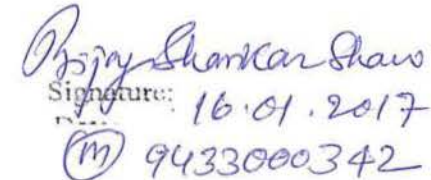 Bijay Shankar Shaw
Signature:
16.01.2017
(M) 9433000342